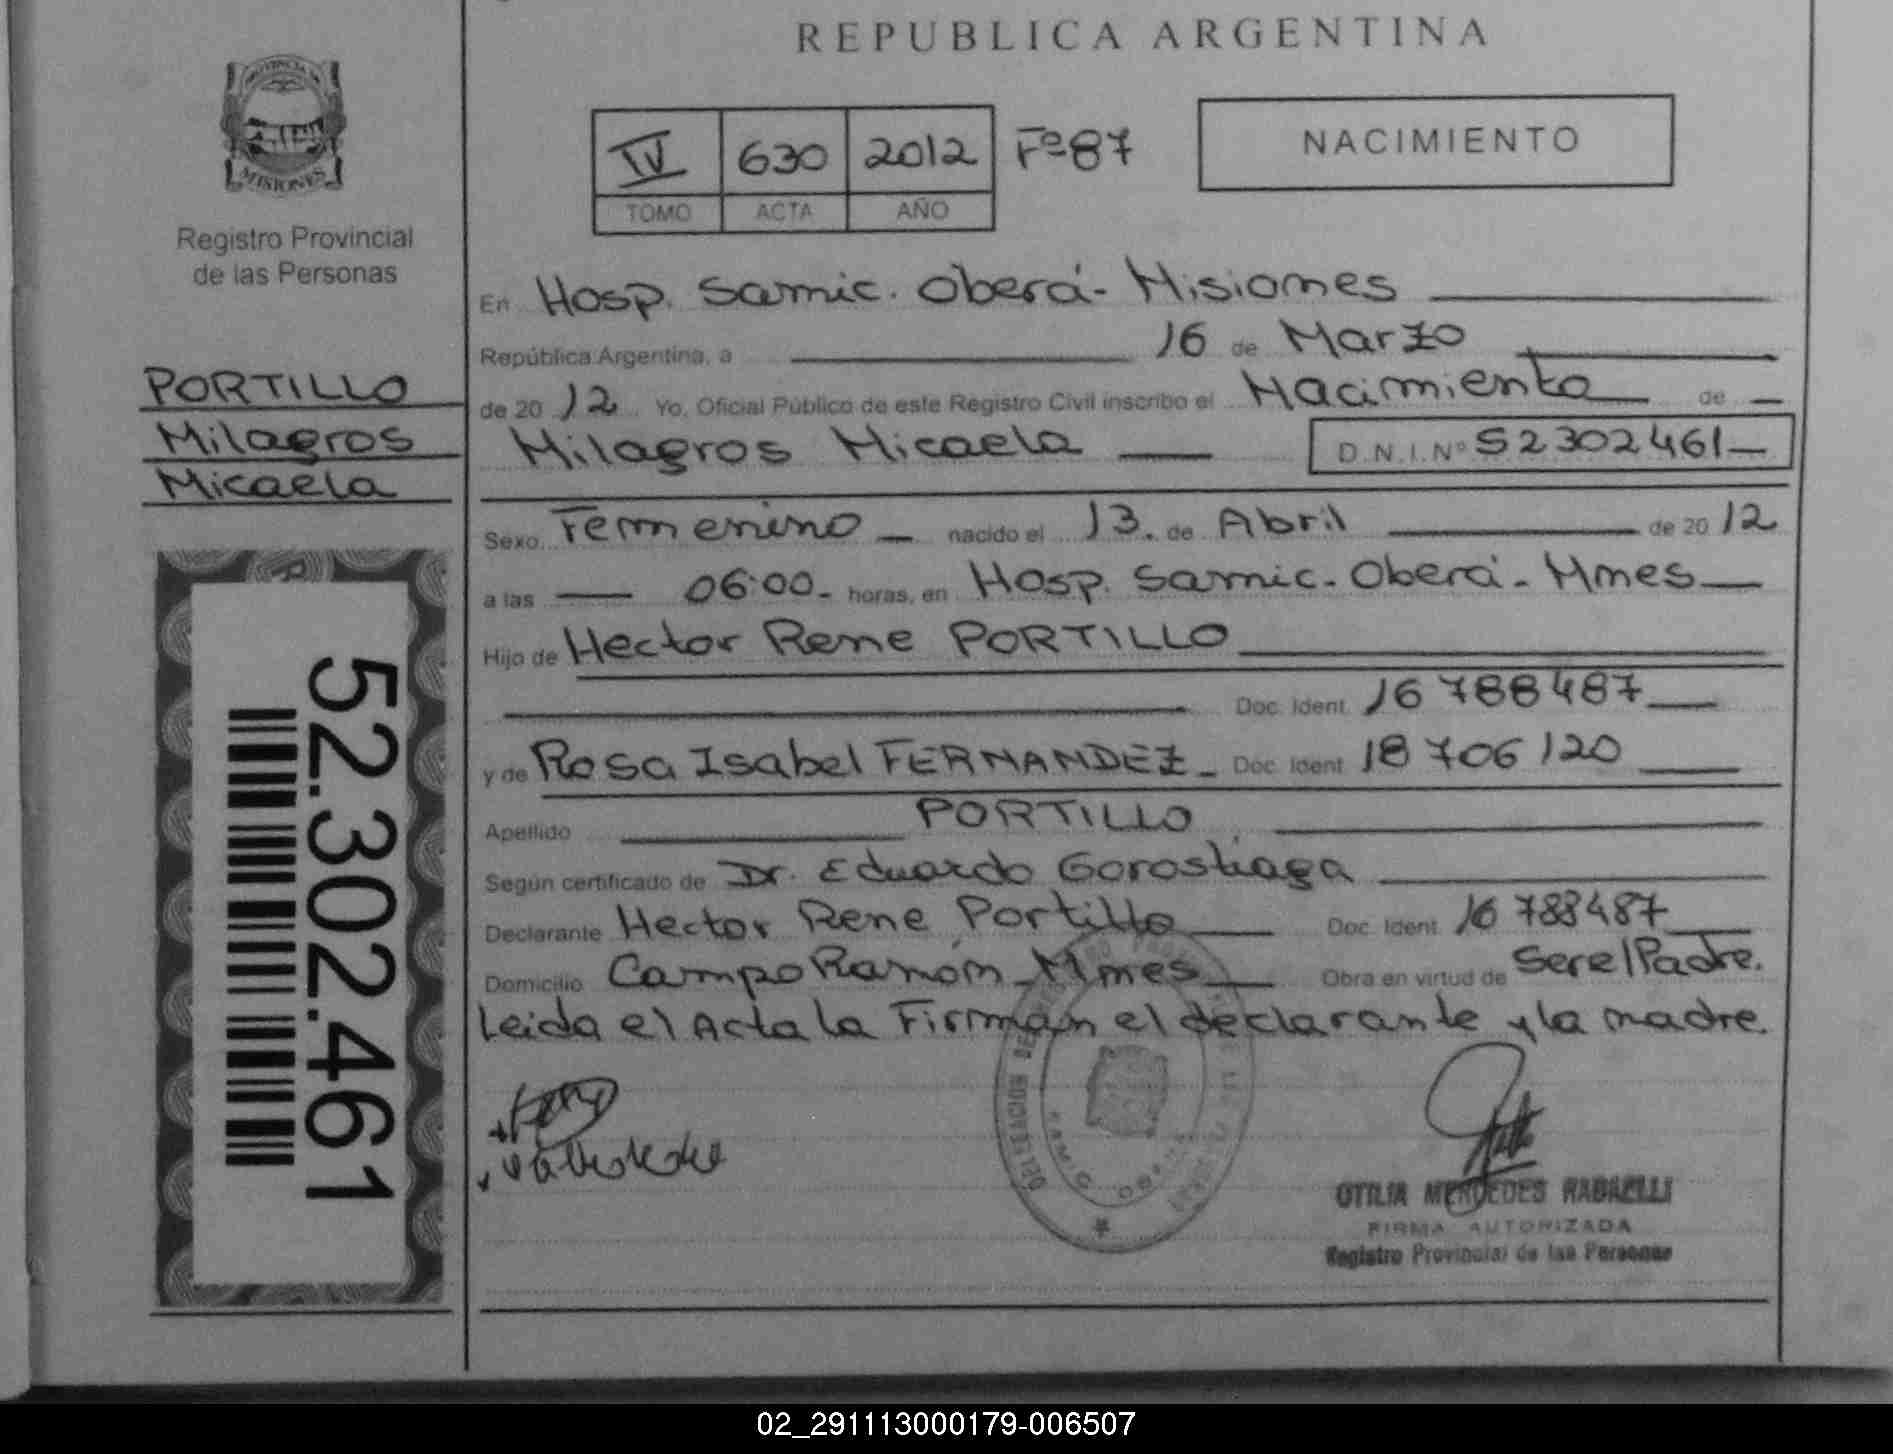 REPUBLICA ARGENTINA
PROVINCIA DE
MISIONES
Registro Provincial
de las Personas
IV 630 2012 Fº 87
TOMO ACTA AÑO
NACIMIENTO
PORTILLO
Milagros
Micaela
52.302.461
En Hosp. Samic. Oberá - Misiones
República Argentina, a 16 de Marzo
de 20 12 Yo, Oficial Público de este Registro Civil inscribo el Nacimiento de
Milagros Micaela D.N.I. Nº 52302461
Sexo Femenino nacido el 13. de Abril de 20 12
a las 06:00. horas, en Hosp. Samic. Oberá - Mnes
Hijo de Hector Rene PORTILLO
Doc. Ident. 16 788487
y de Rosa Isabel FERNANDEZ Doc. Ident. 18 706120
Apellido PORTILLO
Según certificado de Dr. Eduardo Gorostiaga
Declarante Hector Rene Portillo Doc. Ident. 16 788487
Domicilio Campo Ramón - Mnes Obra en virtud de Ser el Padre.
Leida el Acta la Firman el declarante y la madre.
DELEGACION DE
OTILIA MERCEDES
FIRMA AUTORIZADA
Registro Provincial de las Personas
02_291113000179-006507